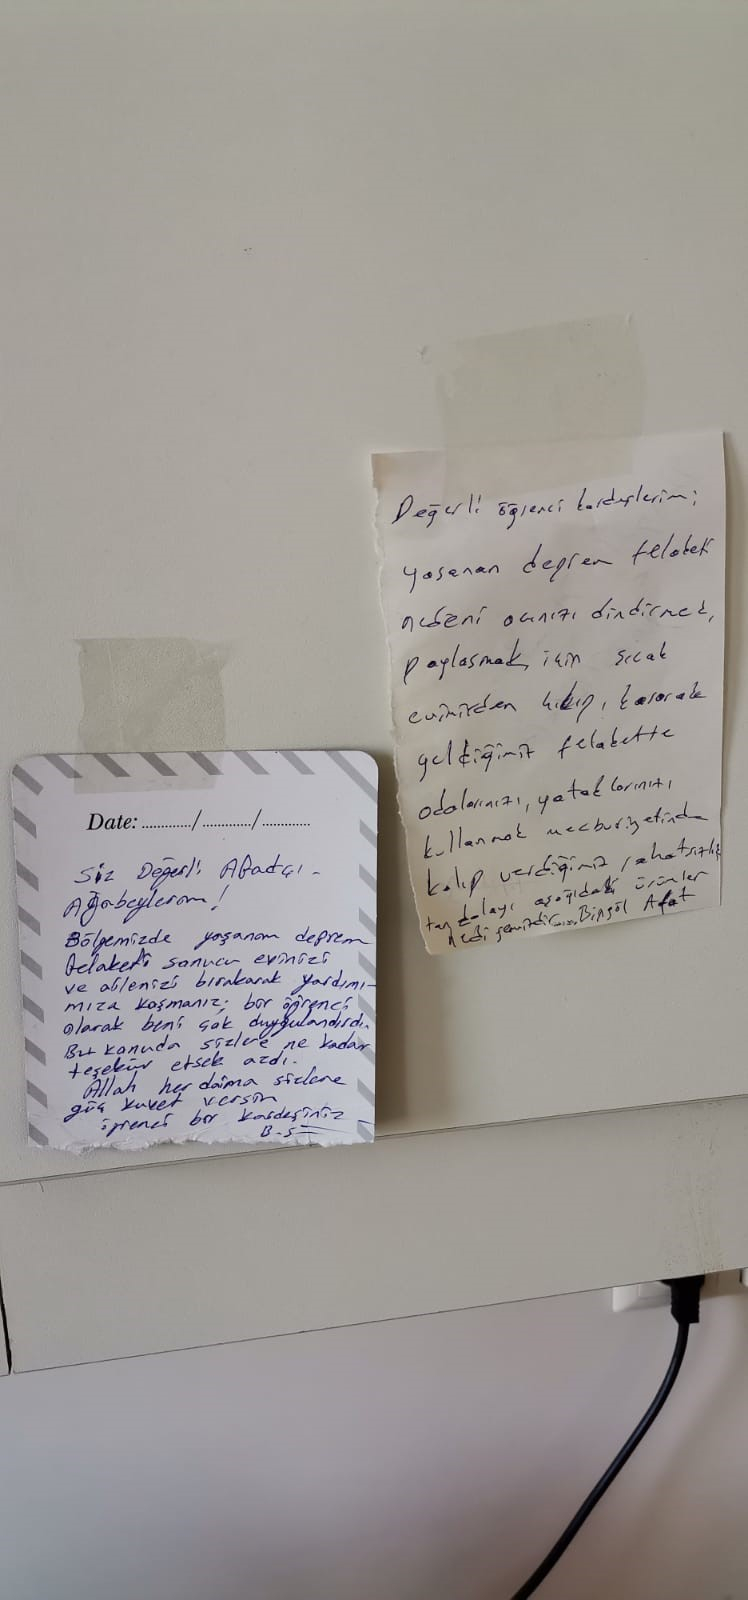 Değerli öğrenci kardeşlerim;
yaşanan deprem felaketi
nedeni acınızı dindirmek,
paylaşmak için sıcak
evimizden çıkıp, koşarak
geldiğimiz felakette
odalarınızı, yataklarınızı
kullanmak mecburiyetinde
kalıp verdiğimiz rahatsızlık
tan dolayı aşağıdaki ürünler
hediyemizdir.... Bingöl Afat
Date: ............/............/............
Siz Değerli Afadçı -
Ağabeylerim!
Bölgemizde yaşanan deprem
felaketi sonucu evinizi
ve ailenizi bırakarak yardımı-
mıza koşmanız; bir öğrenci
olarak beni çok duygulandırdı.
Bu konuda sizlere ne kadar
teşekür etsek azdı.
Allah her daima sizlere
güç kuvet versin
öğrenci bir kardeşiniz
B-S